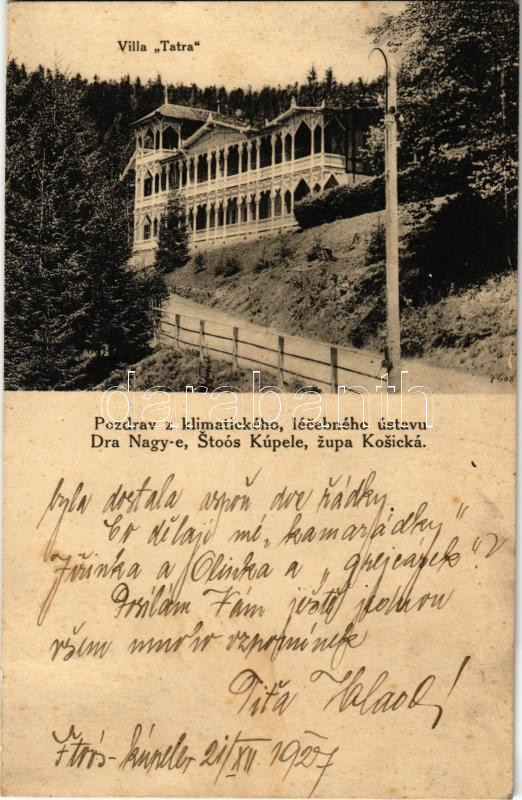 Villa „Tatra“
darabanth
Pozdrav z klimatického, léčebného ústavu
Dra Nagy-e, Štoós Kúpele, župa Košická.
byla dostala aspoň dve řádky.
Co dělají mé „kamarádky“
Jiřinka a Olinka a
Posílám Vám ještě jednou
všem mnoho vzpomínek
Štoós-kúpele, 21/XII. 1927